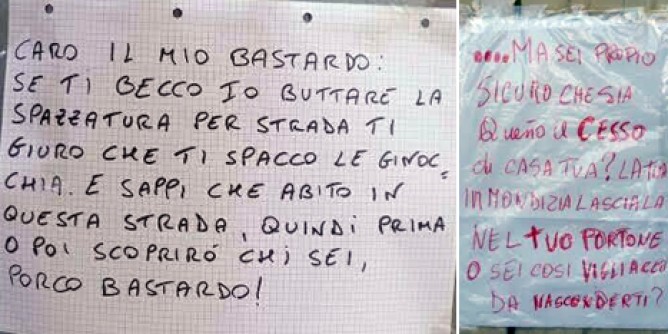 CARO IL MIO BASTARDO:
SE TI BECCO IO BUTTARE LA
SPAZZATURA PER STRADA TI
GIURO CHE TI SPACCO LE GINOC=
CHIA. E SAPPI CHE ABITO IN
QUESTA STRADA, QUINDI PRIMA
O POI SCOPRIRÓ CHI SEI,
PORCO BASTARDO!
....MA SEI PROPIO
SICURO CHE SIA
QUEllO il CESSO
di CASA TUA? LA TUA
IMMONDIZIA LASCIALA
NEL TUO PORTONE
O SEI COSI VIGLIACCO
DA NASCONDERTI?